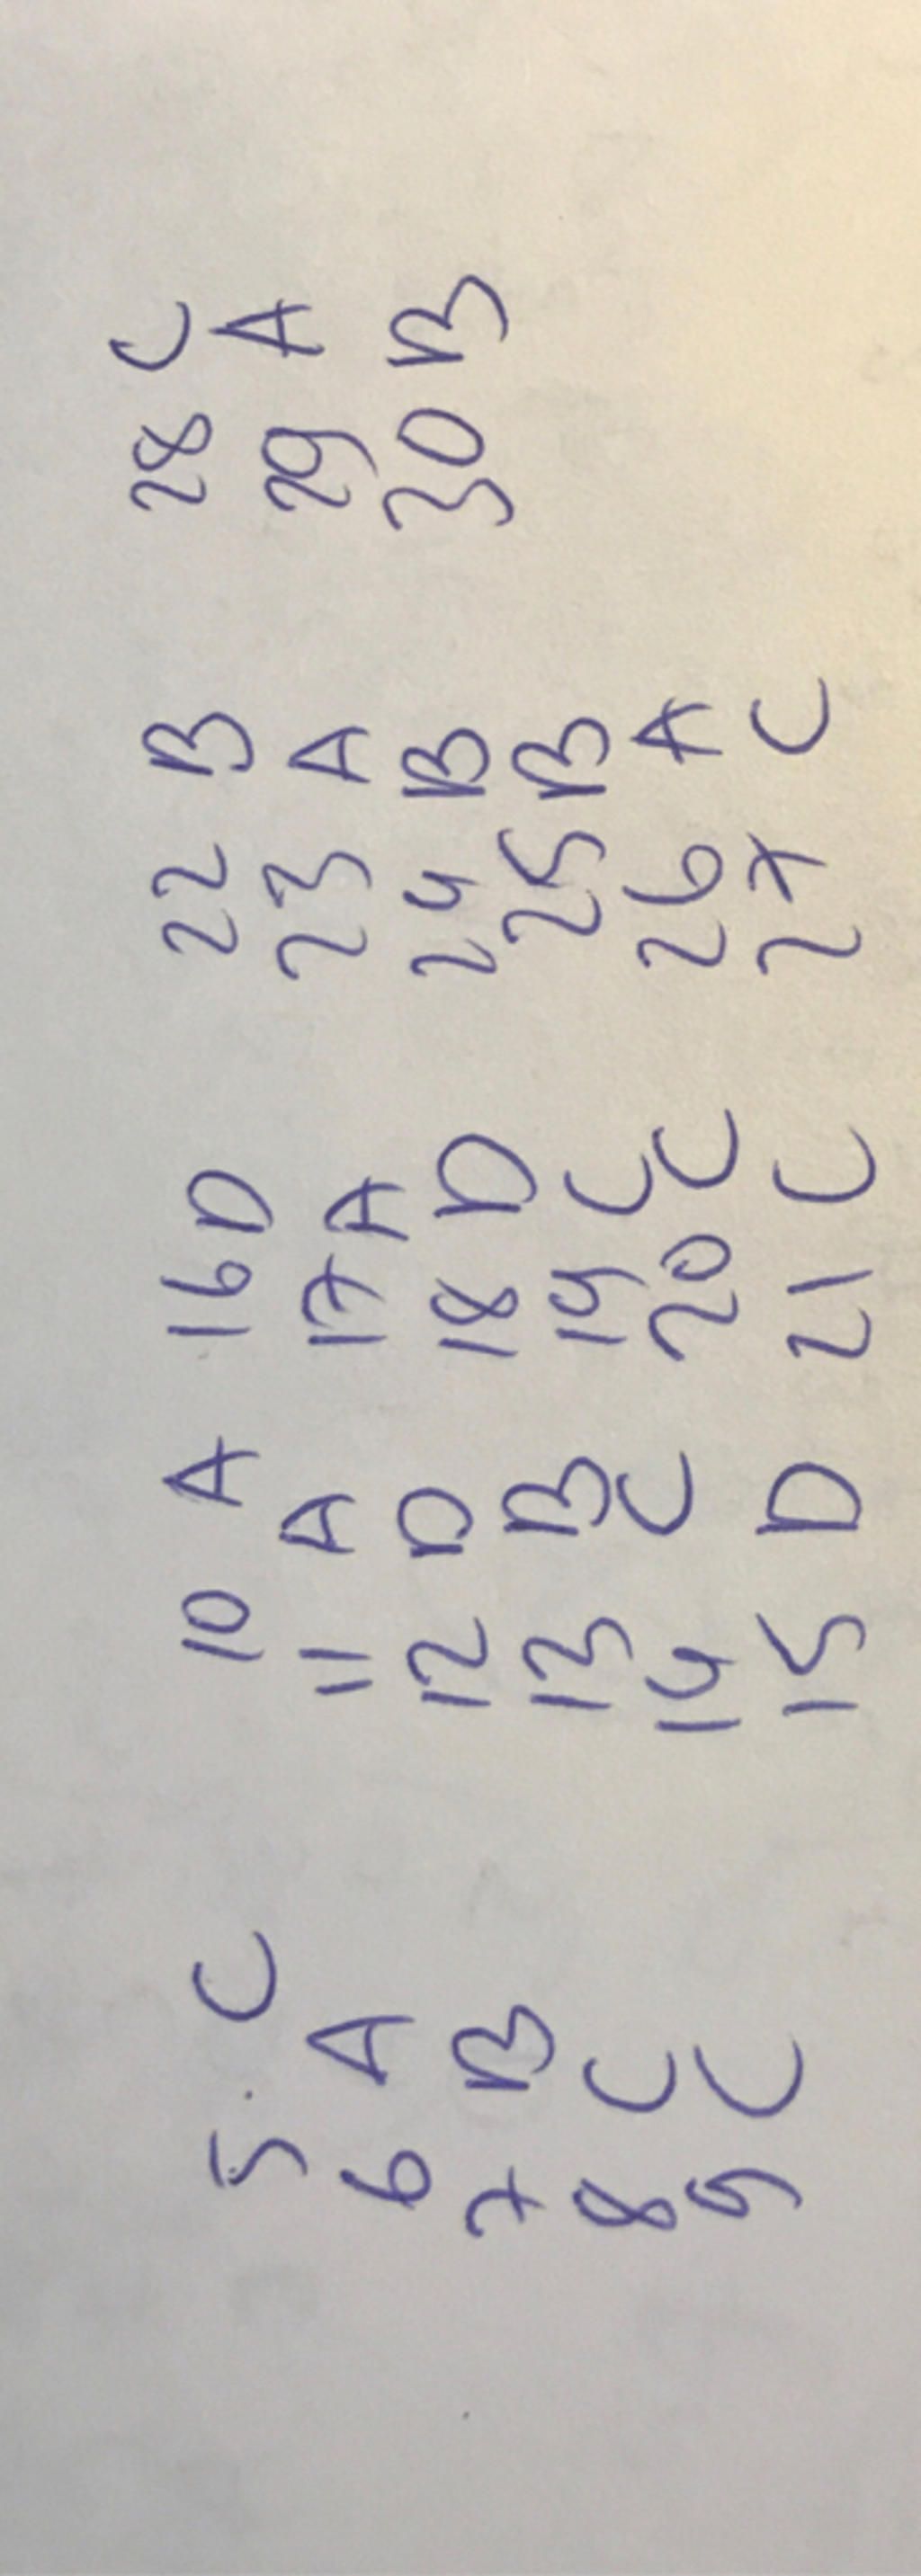 5 C
6 A
7 B
8 C
9 C
10 A
11 A
12 D
13 B
14 C
15 D
16 D
17 A
18 D
19 C
20 C
21 C
22 B
23 A
24 B
25 B
26 A
27 C
28 C
29 A
30 B